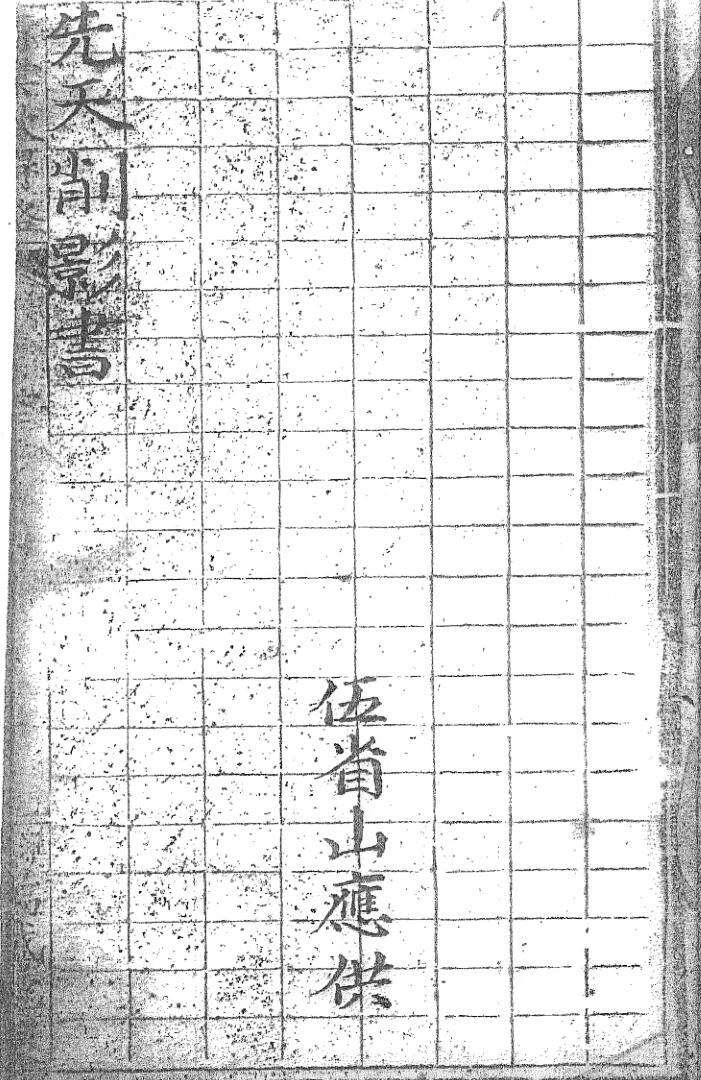 伍省山應供
先天削影書